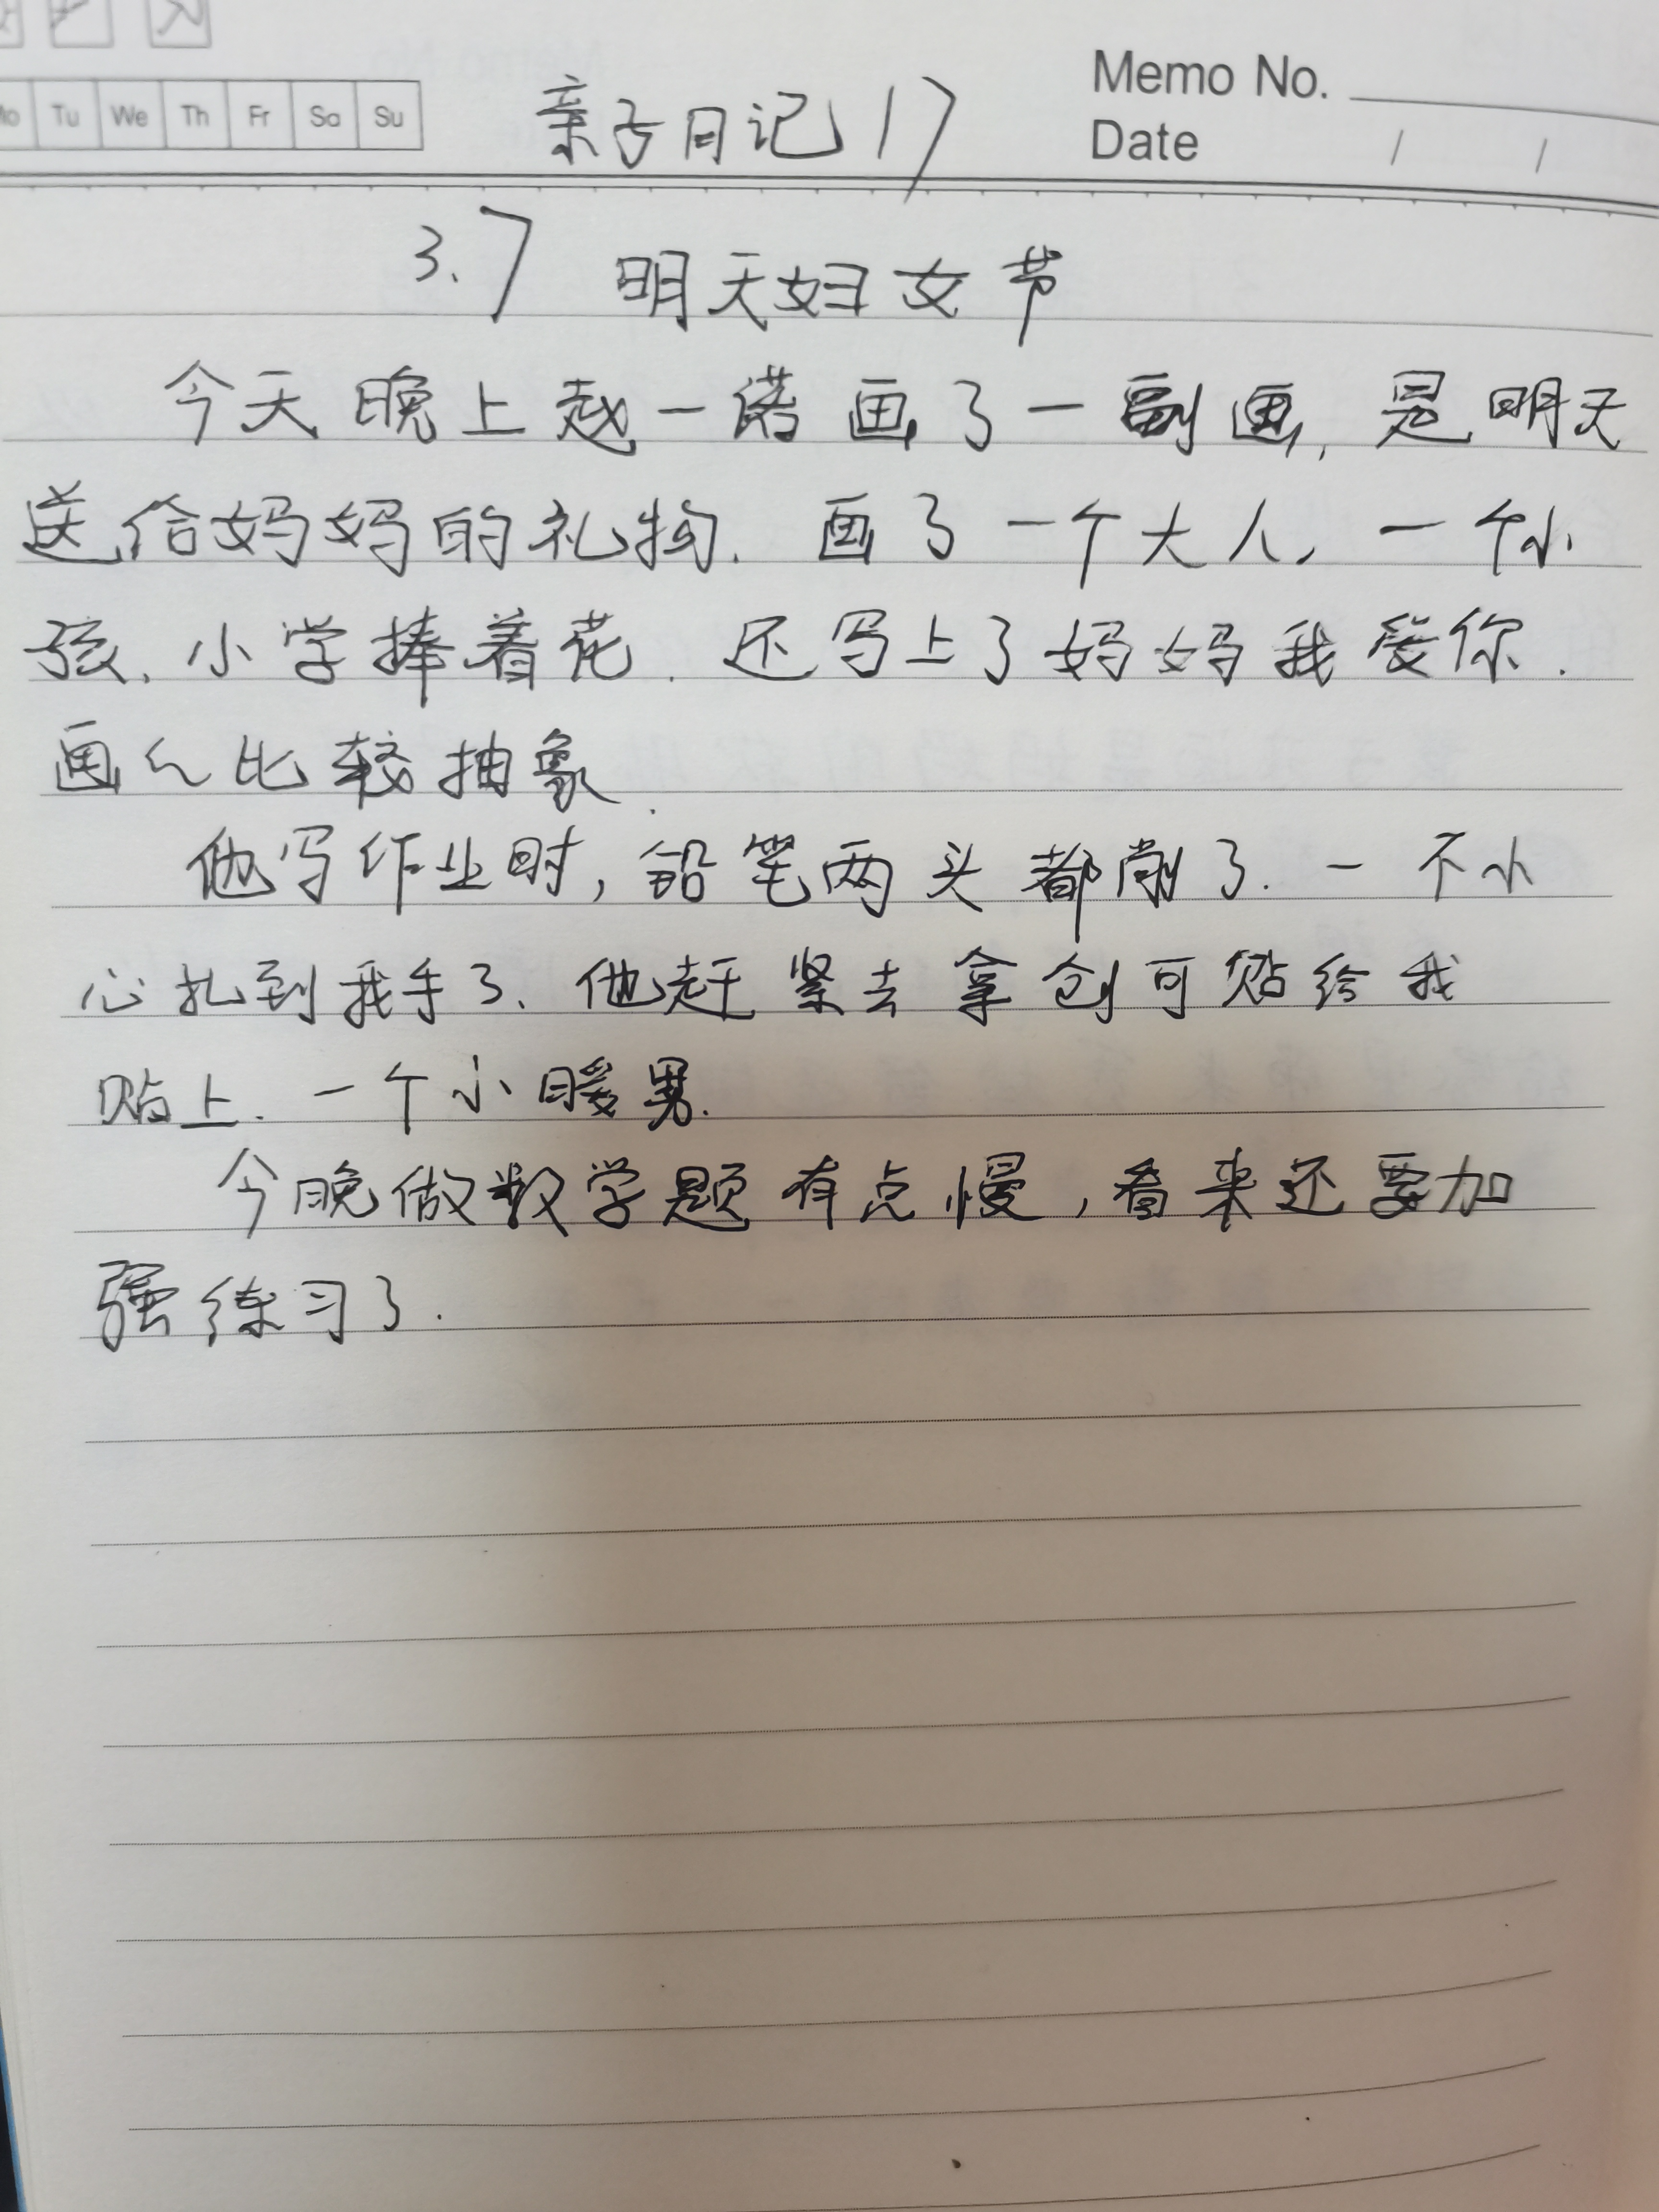 Mo Tu We Th Fr Sa Su
亲子日记17
Memo No.
Date / /
3.7 明天妇女节
今天晚上赵一诺画了一副画,是明天
送给妈妈的礼物.画了一个大人,一个小
孩.小学捧着花.还写上了妈妈我爱你.
画人比较抽象.
他写作业时,铅笔两头都削了.一不小
心扎到我手了.他赶紧去拿创可贴给我
贴上.一个小暖男.
今晚做数学题有点慢,看来还要加
强练习了.